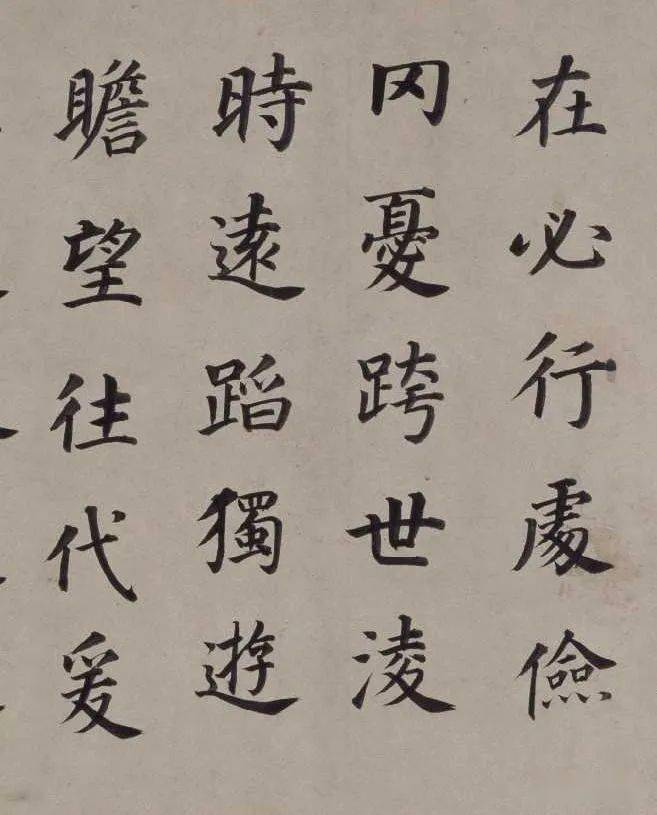 在必行處儉
冈憂跨世淩
時遠蹈獨遊
瞻望往代爰